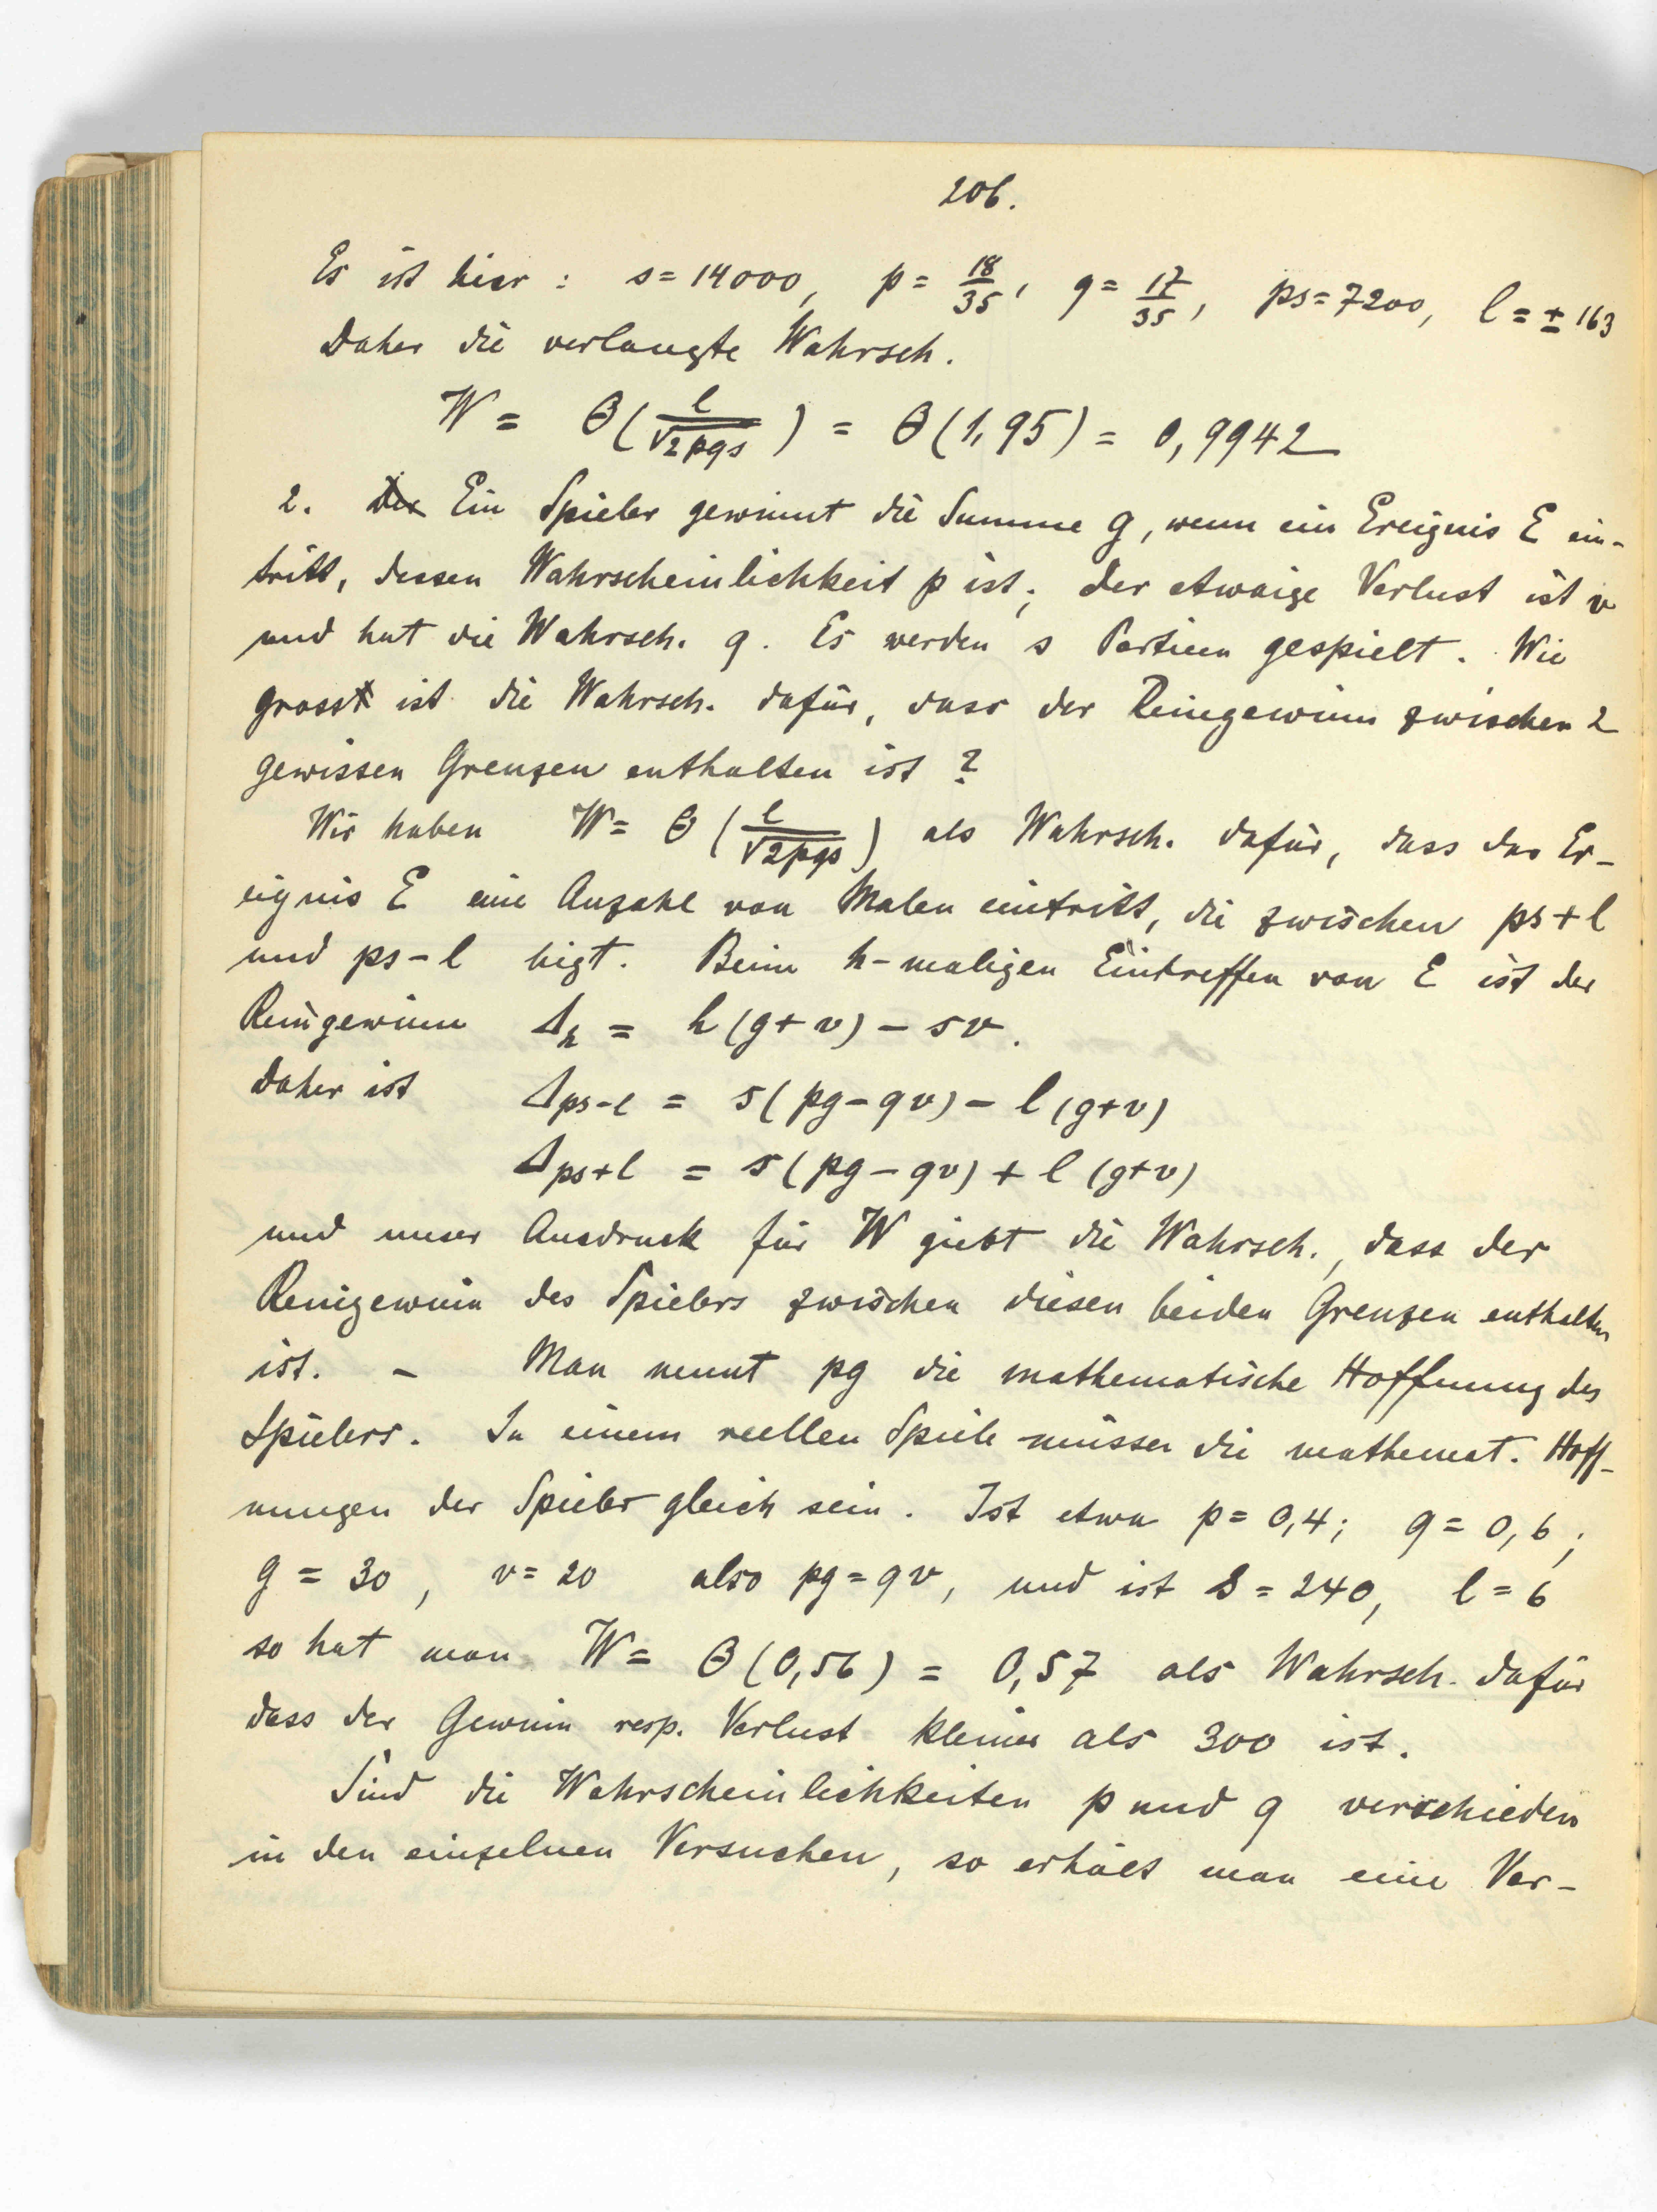 206.
Es ist hier : s = 14000, p = 18/35, q = 17/35, ps = 7200, l = ± 163
Daher die verlangte Wahrsch.
W = Θ(l/√2pqs) = Θ(1,95) = 0,9942
2. Der Ein Spieler gewinnt die Summe g, wenn ein Ereignis E ein-
tritt, dessen Wahrscheinlichkeit p ist; der etwaige Verlust ist v
und hat die Wahrsch. q. Es werden s Partieen gespielt. Wie
gross ist die Wahrsch. dafür, dass der Reingewinn zwischen 2
gewissen Grenzen enthalten ist ?
Wir haben W = Θ(l/√2pqs) als Wahrsch. dafür, dass das Er-
eignis E eine Anzahl von Malen eintritt, die zwischen ps + l
und ps - l liegt. Beim h-maligen Eintreffen von E ist der
Reingewinn Δh = h(g+v) - sv.
Daher ist Δps-l = s(pg-qv) - l(g+v)
Δps+l = s(pg-qv) + l(g+v)
und unser Ausdruck für W giebt die Wahrsch., dass der
Reingewinn des Spielers zwischen diesen beiden Grenzen enthalten
ist. - Man nennt pg die mathematische Hoffnung des
Spielers. In einem reellen Spiele müssen die mathemat. Hoff-
nungen der Spieler gleich sein. Ist etwa p = 0,4; q = 0,6;
g = 30, v = 20 also pg = qv, und ist s = 240, l = 6
so hat man W = Θ(0,56) = 0,57 als Wahrsch. dafür
dass der Gewinn resp. Verlust kleiner als 300 ist.
Sind die Wahrscheinlichkeiten p und q verschieden
in den einzelnen Versuchen, so erhält man eine Ver-